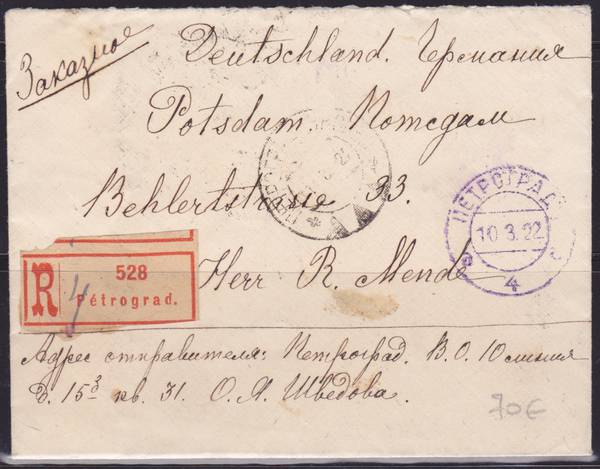 Заказное
Deutschland. Германия
Potsdam. Потсдам
Behlertstrasse 33.
Herr R. Mende
R
528
Pétrograd.
4
ПЕТРОГРАД
10.3.22
4
Адрес отправителя: Петроград. В.О. 10 линия
д. 15 кв. 31. О. А. Шведова.
70€